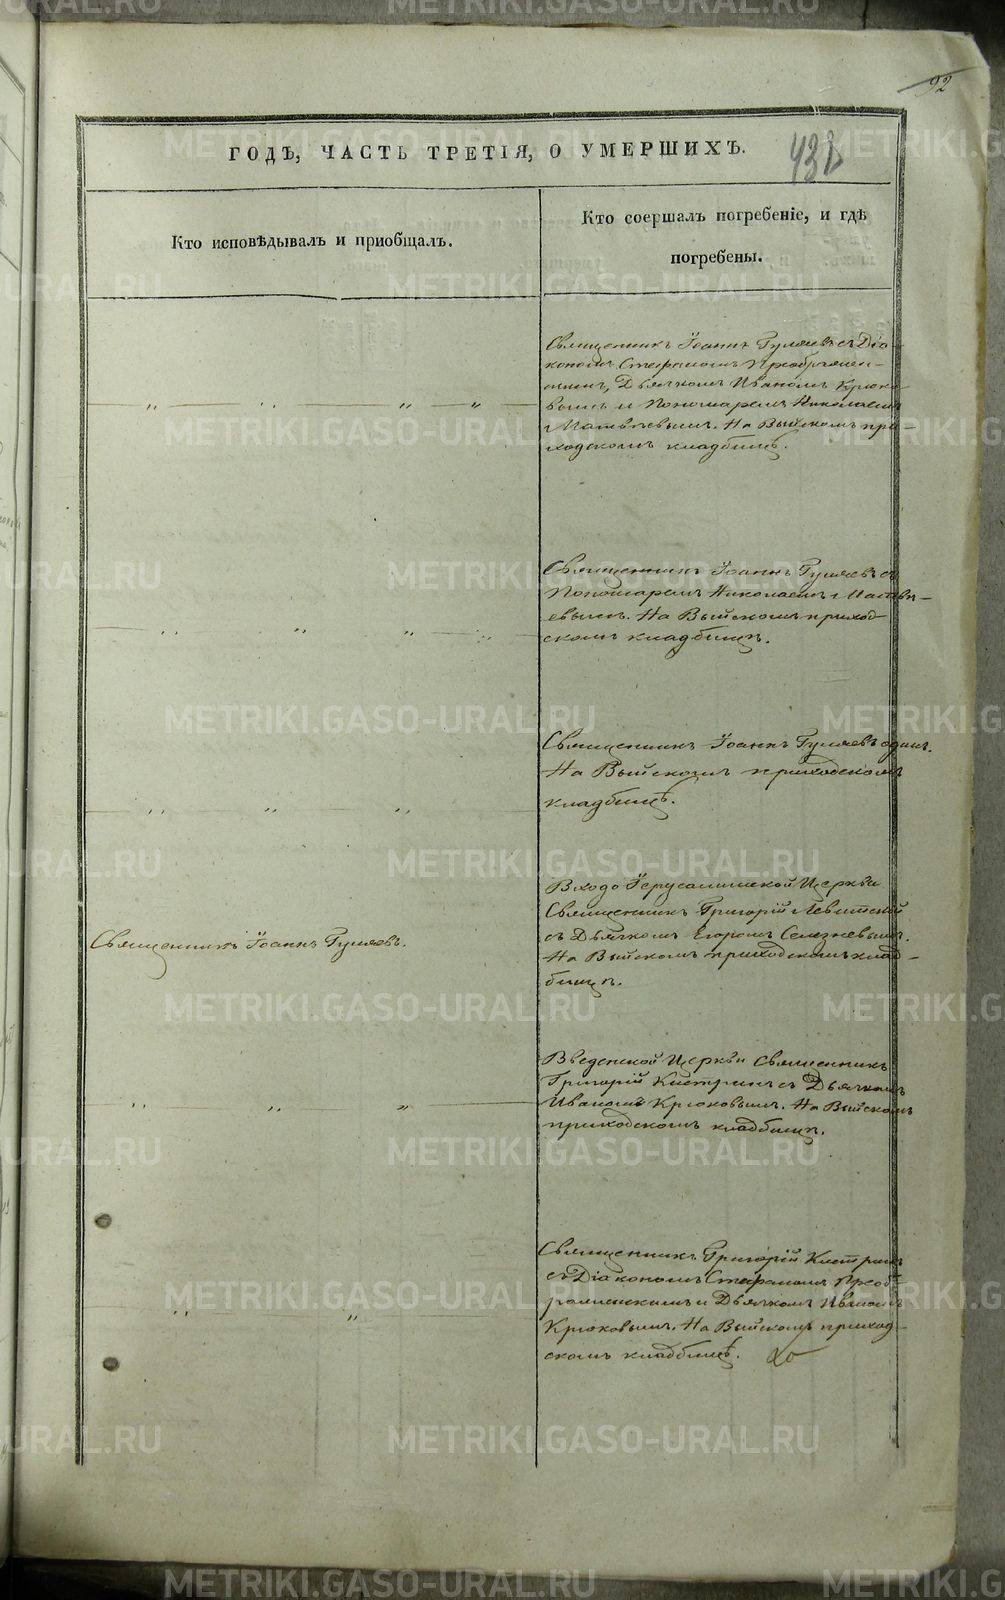 92
ГОДЪ, ЧАСТЬ ТРЕТІЯ, О УМЕРШИХЪ.
432
Кто исповѣдывалъ и приобщалъ.
Кто соершалъ погребеніе, и гдѣ
погребены.
Священникъ Іоаннъ Гуляевъ съ Діа-
кономъ Стефаномъ Преображен-
скимъ, Дьячкомъ Иваномъ Крюко-
вымъ и Пономаремъ Николаемъ
Матвѣевымъ. На Выйскомъ при-
ходскомъ кладбищѣ.
Священникъ Іоаннъ Гуляевъ съ
Пономаремъ Николаемъ Матвѣ-
евымъ. На Выйскомъ приход-
скомъ кладбищѣ.
Священникъ Іоаннъ Гуляевъ одинъ.
На Выйскомъ приходскомъ
кладбищѣ.
Входо Іерусалимской Церкви
Священникъ Григорій Левитской
съ Дьячкомъ Егоромъ Селезневымъ.
На Выйскомъ приходскомъ клад-
бищѣ.
Священникъ Іоаннъ Гуляевъ.
Введенской Церкви Священникъ
Григорій Кистринъ съ Дьячкомъ
Иваномъ Крюковымъ. На Выйскомъ
приходскомъ кладбищѣ.
Священникъ Григорій Кистринъ
съ Діакономъ Стефаномъ Преоб-
раженскимъ и Дьячкомъ Иваномъ
Крюковымъ. На Выйскомъ приход-
скомъ кладбищѣ.
METRIKI.GASO-URAL.RU